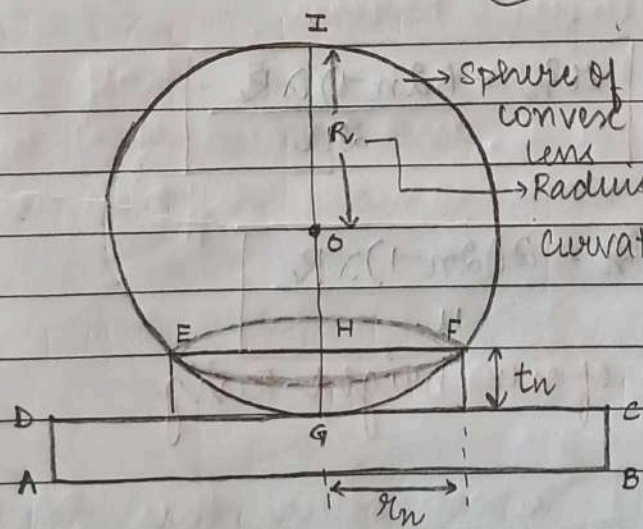 I
Sphere of
convex
lens
R
Radius
O
curvat
E H F
tn
D G C
A B
rn